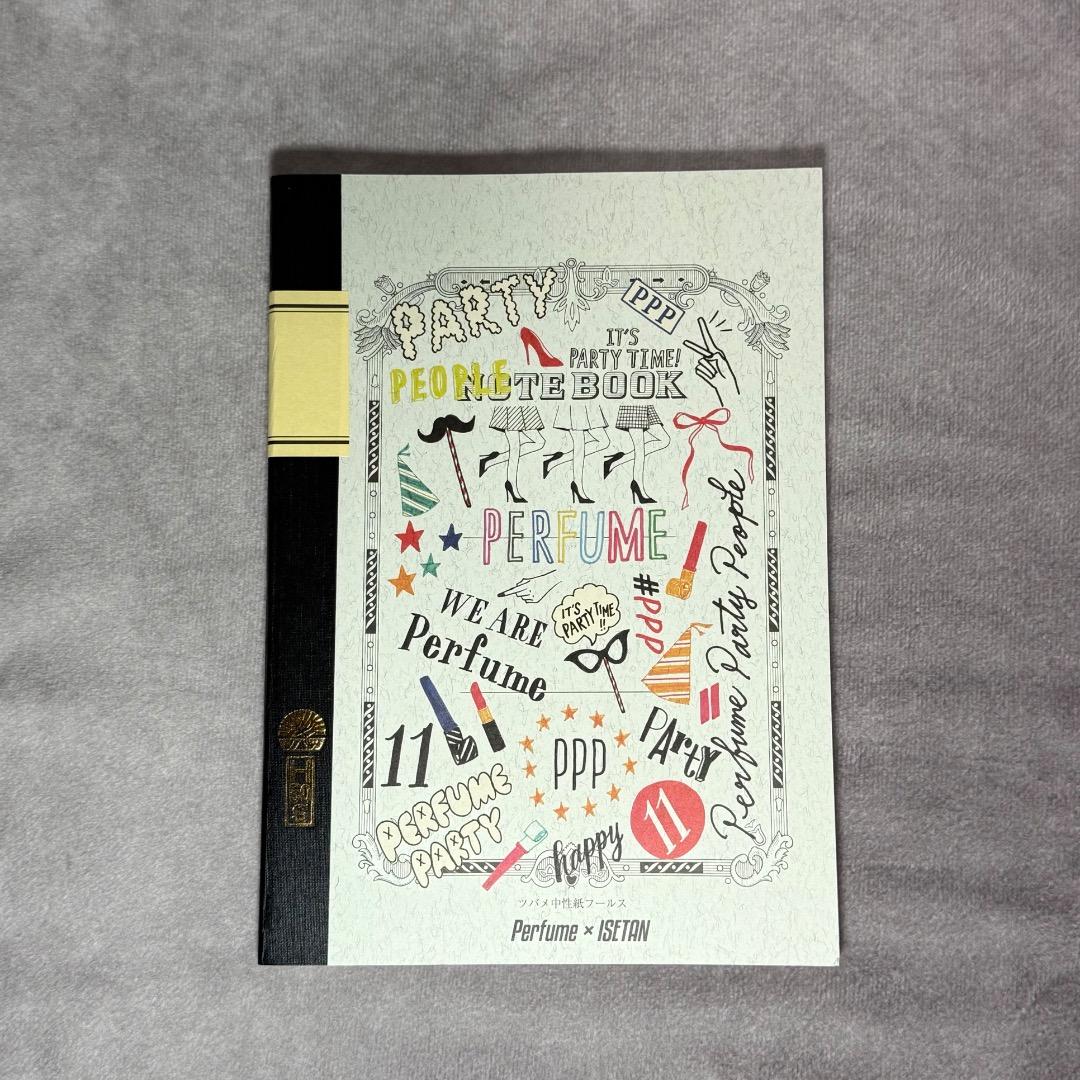 PARTY
PPP
IT'S
PARTY TIME!
PEOPLE
NOTE BOOK
PERFUME
#PPP
WE ARE
Perfume
IT'S
PARTY TIME
!!
Perfume Party People
11
PPP
PArtY
PERFUME
PARTY
11
happy
ツバメ中性紙フールス
Perfume × ISETAN